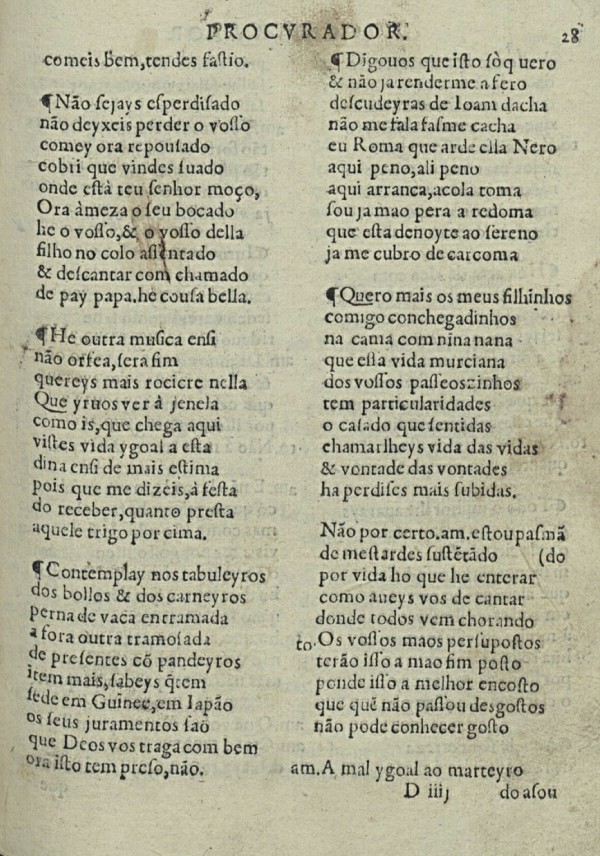 PROCVRADOR. 28
comeis bem,tendes faſtio.
¶Não ſejays eſperdiſado
não deyxeis perder o voſſo
comey ora repouſado
cobri que vindes ſuado
onde eſtà teu ſenhor moço,
Ora àmeza o ſeu bocado
he o voſſo,& o voſſo della
filho no colo aſſentado
& deſcantar com chamado
de pay papa.he couſa bella.
¶He outra muſica enſi
não orfea,ſera fim
quereys mais rocicre nella
Que yruos ver à jenela
como is,que chega aqui
viſtes vida ygoal a eſta
dina enſi de mais eſtima
pois que me dizeis,à feſta
do receber,quanto preſta
aquele trigo por cima.
¶Contemplay nos tabuleyros
dos bollos & dos carneyros
perna de vaca entramada
a fora outra tramoſada
de preſentes cõ pandeyros
item mais,ſabeys q̃tem
ſede em Guinee,em Iapão
os ſeus juramentos ſaõ
que Deos vos traga com bem
ora iſto tem preſo,não.
¶Digouos que iſto ſò q uero
& não ja renderme a fero
deſcudeyras de Ioam dacha
não me fala faſme cacha
eu Roma que arde ella Nero
aqui peno,ali peno
aqui arranca,acola toma
ſou ja mao pera a redoma
que eſta denoyte ao ſereno
ja me cubro de carcoma
¶Quero mais os meus filhinhos
comigo conchegadinhos
na cama com nina nana
que eſſa vida murciana
dos voſſos paſſeoszinhos
tem particularidades
o caſado que ſentidas
chamarlheys vida das vidas
& vontade das vontades
ha perdiſes mais ſubidas.
Não por certo.am.eſtou paſmã
de meſtardes ſuſtẽtãdo (do
por vida ho que he enterar
como aueys vos de cantar
donde todos vem chorando
to.Os voſſos maos perſupoſtos
terão iſſo a mao fim poſto
ponde iſſo a melhor encoſto
que quẽ não paſſou deſgoſtos
não pode conhecer goſto
am.A mal ygoal ao marteyro
D iiij doaſou